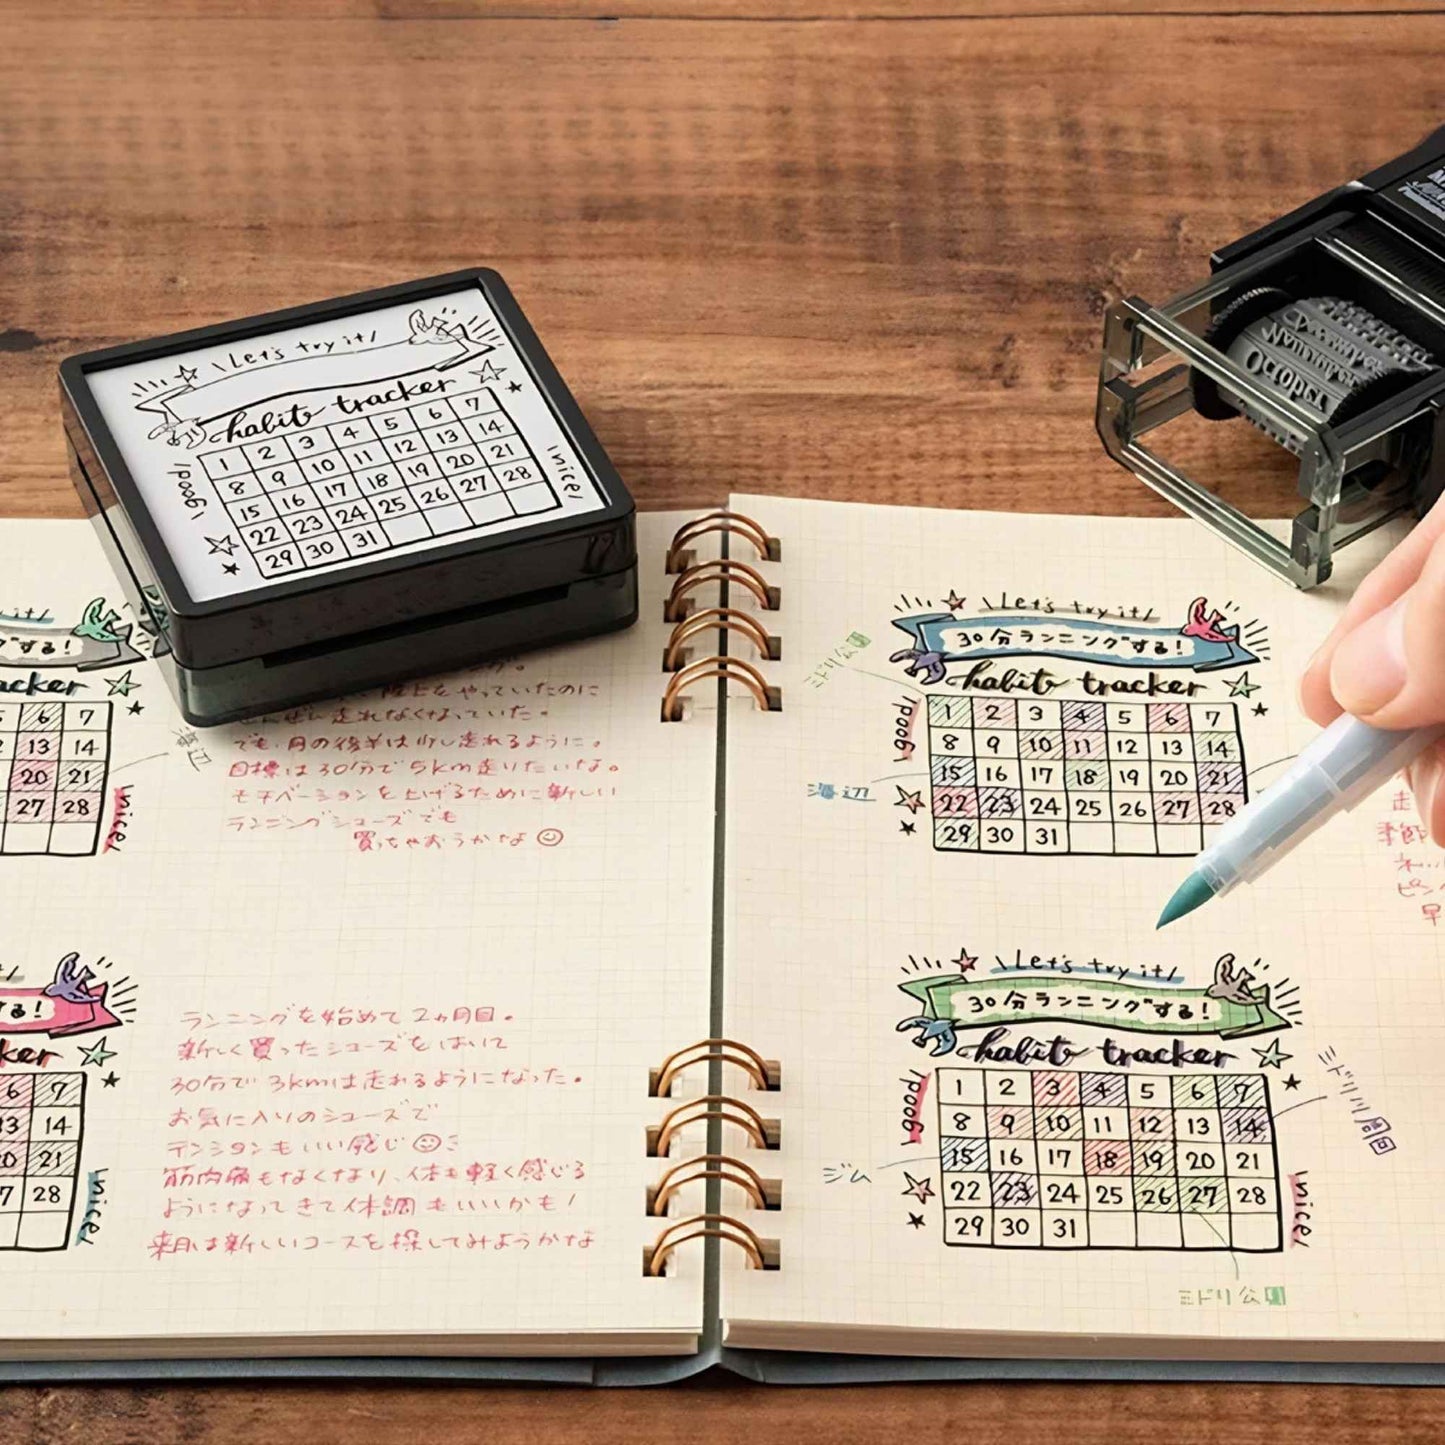 \Let's try it/
habit tracker
1 2 3 4 5 6 7
8 9 10 11 12 13 14
15 16 17 18 19 20 21
22 23 24 25 26 27 28
29 30 31
\good/
\nice/
December
November
October
it/
する!
acker
6 7
13 14
20 21
27 28
\nice/
海辺
陸上をやっていたのに
ぜんぜん走れなくなっていた。
でも、月の後半は少し走れるように。
目標は30分で5km走りたいな。
モチベーションを上げるために新しい
ランニングシューズでも
買っちゃおうかな
する!
ker
6 7
13 14
20 21
27 28
\nice/
ランニングを始めて2ヵ月目。
新しく買ったシューズをはいて
30分で3kmは走れるようになった。
お気に入りのシューズで
テンションもいい感じ
筋肉痛もなくなり、体も軽く感じる
ようになってきて体調もいいかも!
来月は新しいコースを探してみようかな
\Let's try it/
30分ランニングする!
habit tracker
ミドリ公園
\good/
海辺
1 2 3 4 5 6 7
8 9 10 11 12 13 14
15 16 17 18 19 20 21
22 23 24 25 26 27 28
29 30 31
走
季節
ピン
早
\Let's try it/
30分ランニングする!
habit tracker
\good/
ジム
1 2 3 4 5 6 7
8 9 10 11 12 13 14
15 16 17 18 19 20 21
22 23 24 25 26 27 28
29 30 31
\nice/
ミドリ川周回
ミドリ公園